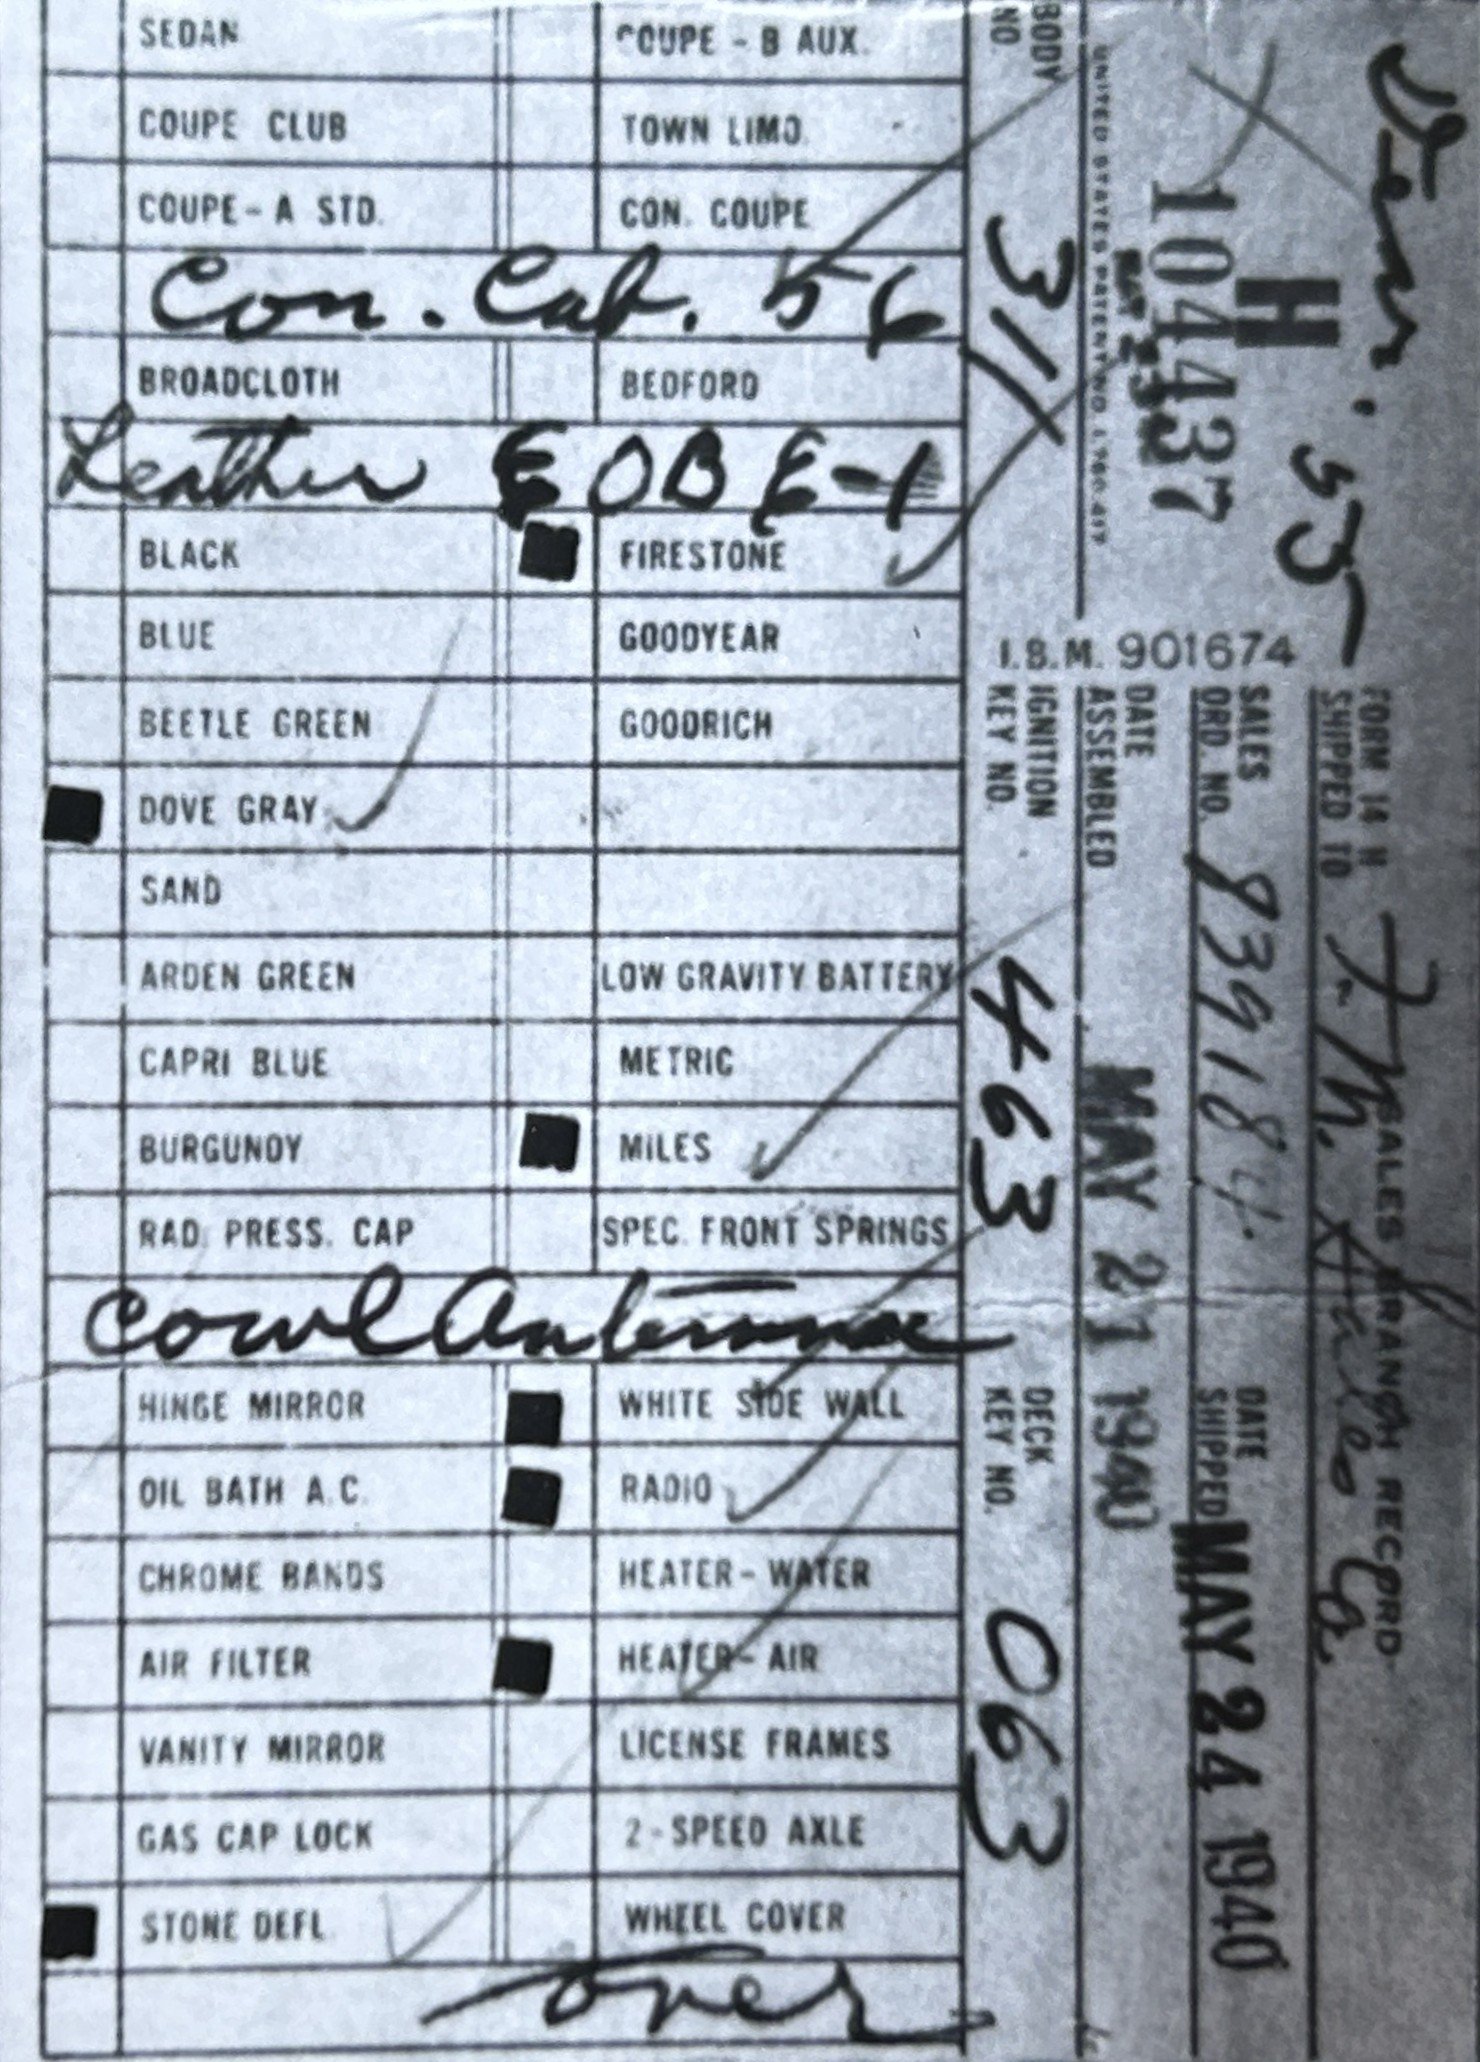 SEDAN
COUPE - B AUX.
COUPE CLUB
TOWN LIMO.
COUPE - A STD.
CON. COUPE
Con. Cab. 56
BROADCLOTH
BEDFORD
Leather
BLACK
FIRESTONE
BLUE
GOODYEAR
BEETLE GREEN
GOODRICH
DOVE GRAY
SAND
ARDEN GREEN
LOW GRAVITY BATTERY
CAPRI BLUE
METRIC
BURGUNDY
MILES
RAD. PRESS. CAP
SPEC. FRONT SPRINGS
Cowl Antennae
HINGE MIRROR
WHITE SIDE WALL
OIL BATH A.C.
RADIO
CHROME BANDS
HEATER - WATER
AIR FILTER
HEATER - AIR
VANITY MIRROR
LICENSE FRAMES
GAS CAP LOCK
2 - SPEED AXLE
STONE DEFL.
WHEEL COVER
over
55
FORM 14 H
SALES BRANCH RECORD
SHIPPED TO
Co.
H
104437
SALES ORD. NO.
839184
DATE SHIPPED
MAY 24 1940
UNITED STATES PATENT NO. 1,780,417
I.B.M. 901674
DATE ASSEMBLED
MAY 21 1940
BODY NO
311
IGNITION KEY NO.
463
DECK KEY NO.
063